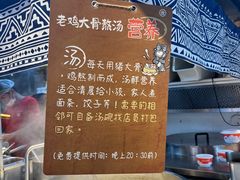 老鸡大骨熬汤 营养
汤 每天用猪大骨
鸡熬制而成,汤鲜营养
适合清晨给小孩、家人煮
面条、饺子等!需要的相
邻可自备汤碗找店员打包
回家。
(免费提供时间:晚上20:30前)